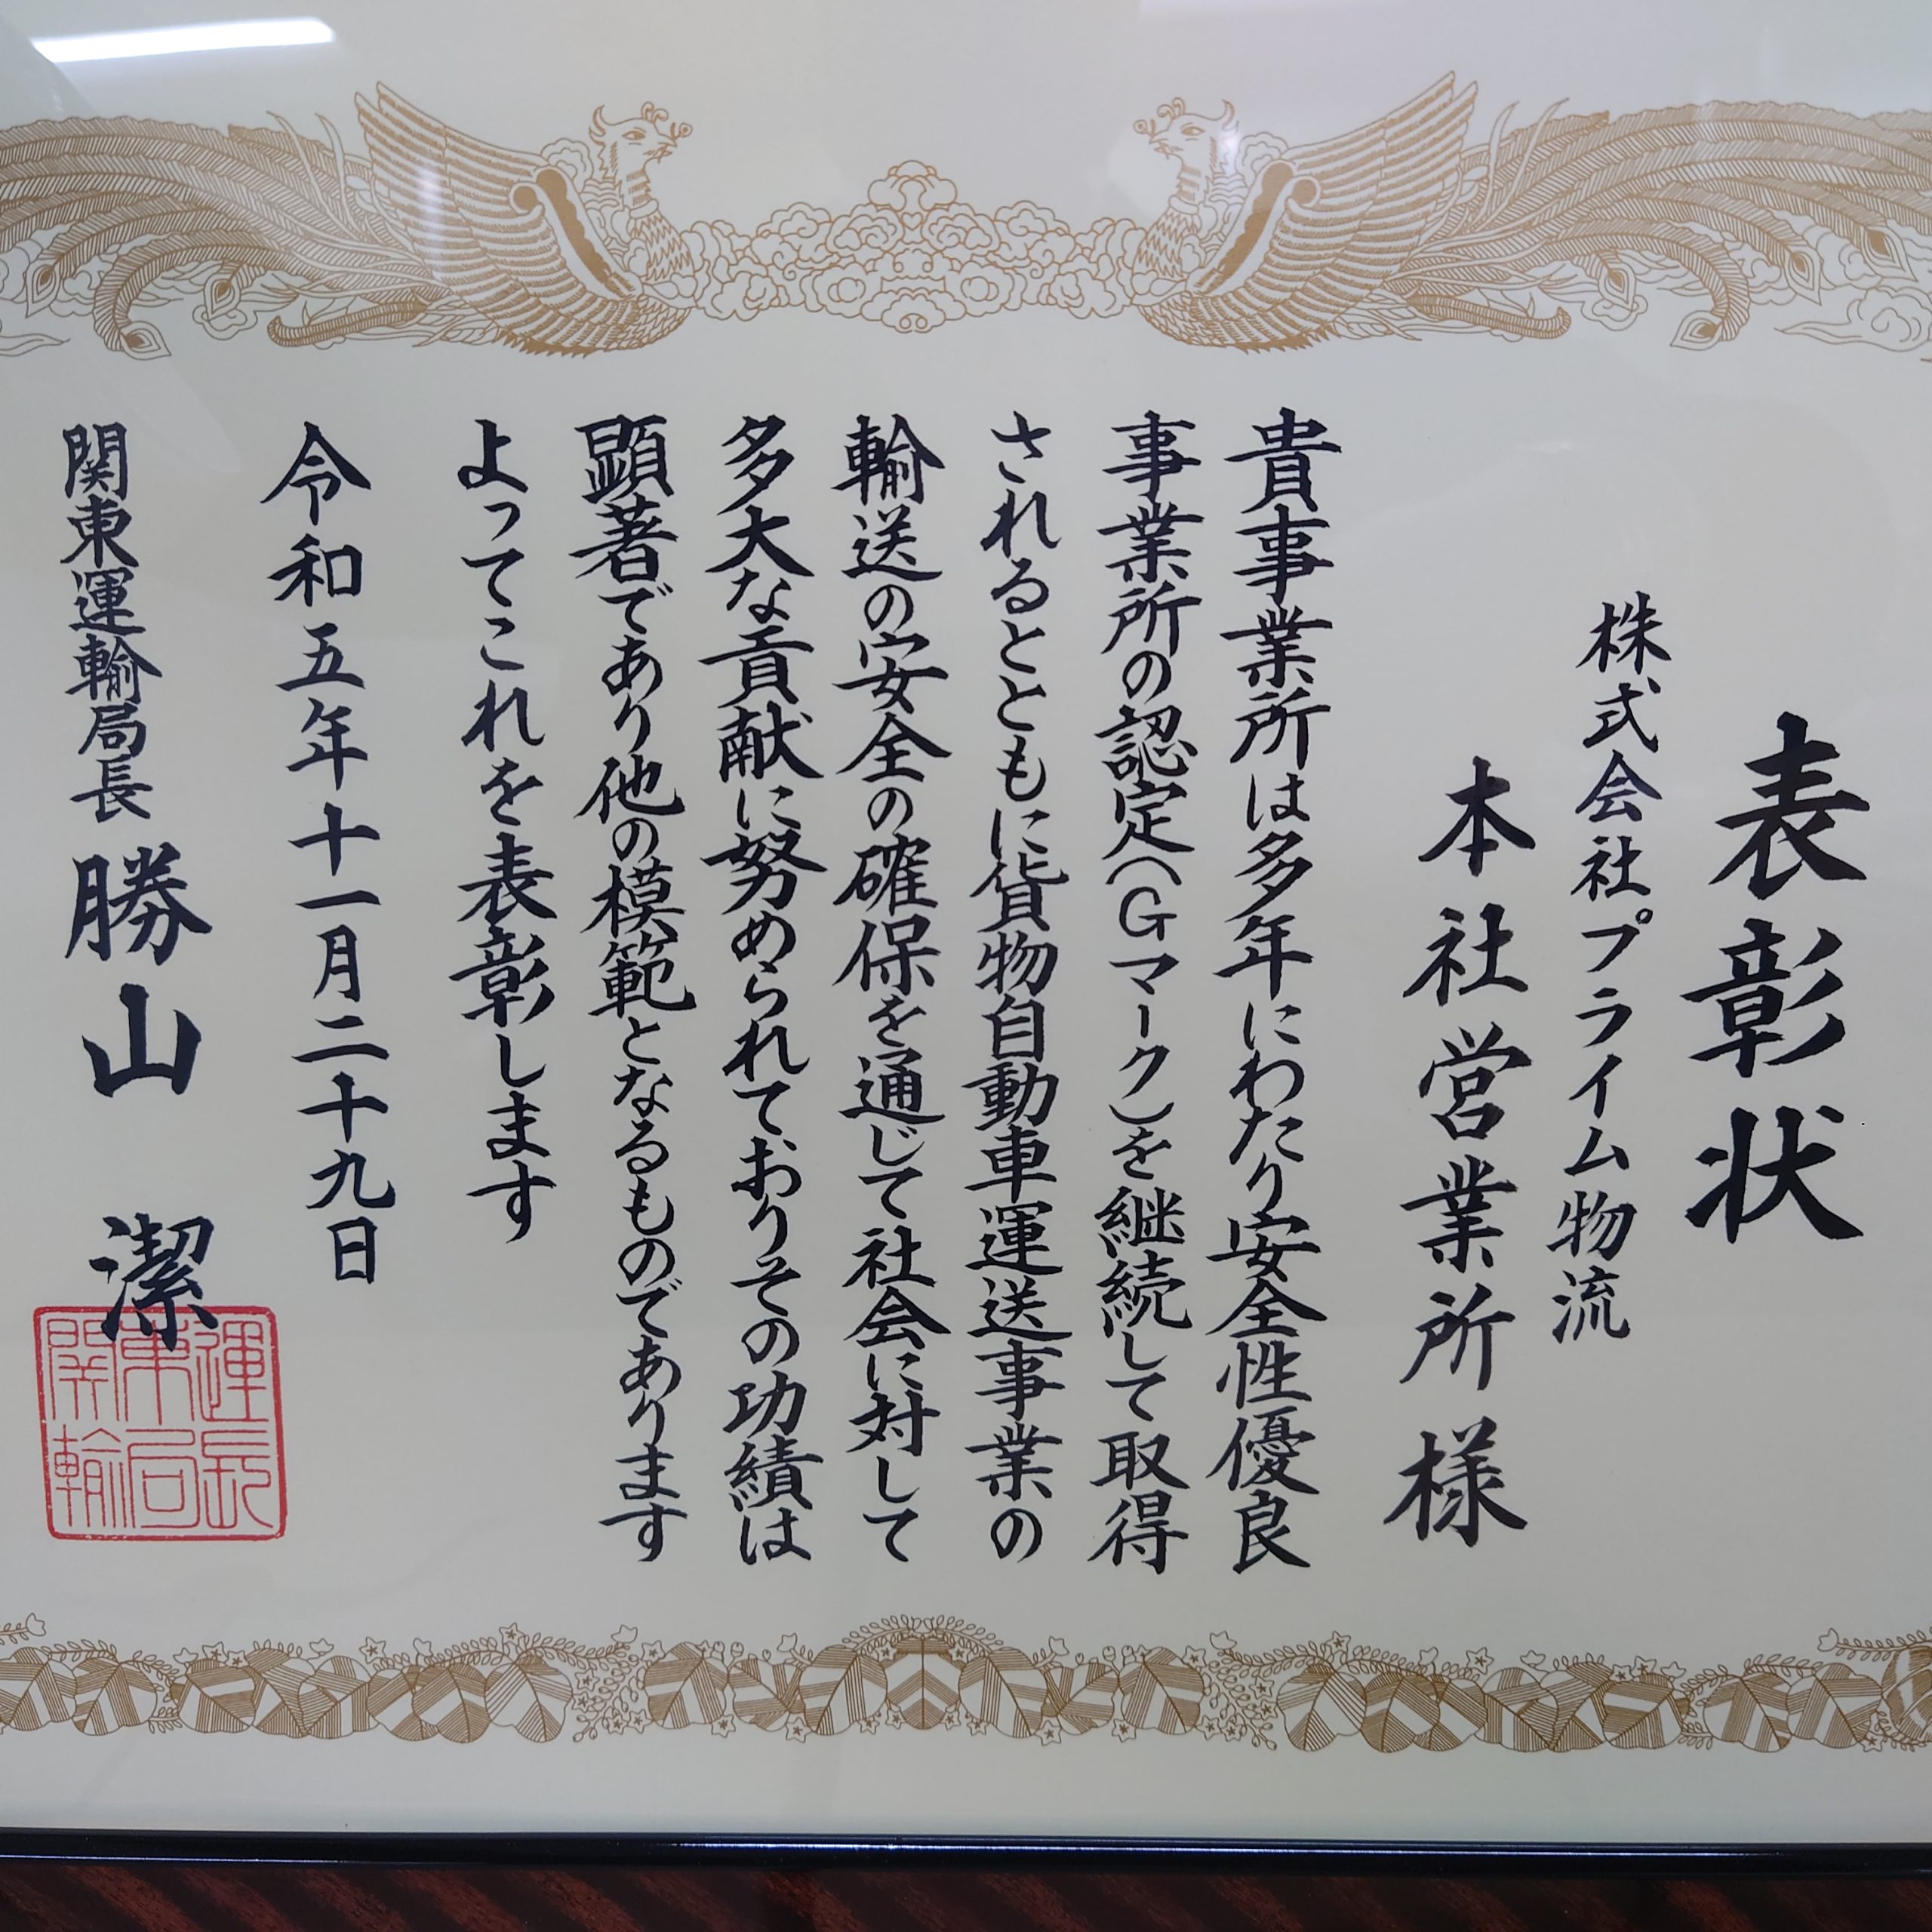 表彰状
株式会社プライム物流
本社営業所様
貴事業所は多年にわたり安全性優良
事業所の認定(Gマーク)を継続して取得
されるとともに貨物自動車運送事業の
輸送の安全の確保を通じて社会に対して
多大な貢献に努められておりその功績は
顕著であり他の模範となるものであります
よってこれを表彰します
令和五年十一月二十九日
関東運輸局長 勝山 潔
運長
東局
関輸